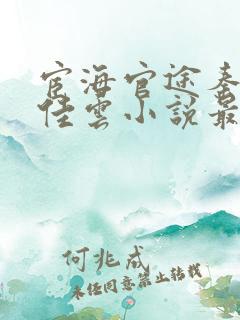 宦海官途秦
佳雲小說最
何兆成
未经同意禁止转载